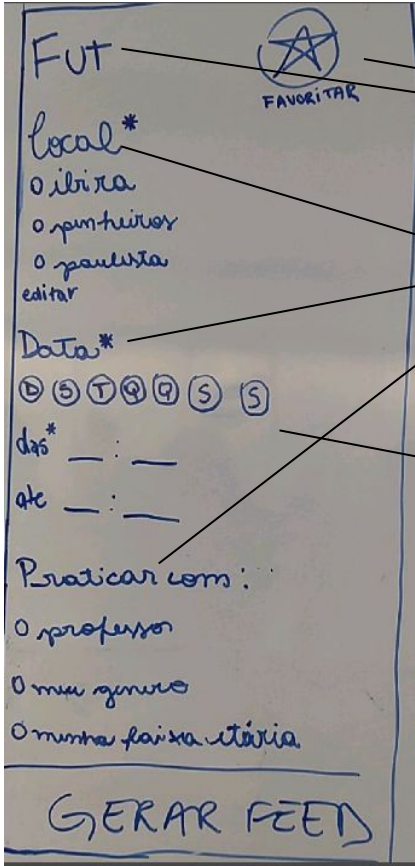 Fut
FAVORITAR
local*
o ibira
o pinheiros
o paulista
editar
Data*
D S T Q Q S S
das* __ : __
ate __ : __
Praticar com:
o professor
o meu genero
o minha faixa etária
GERAR FEED